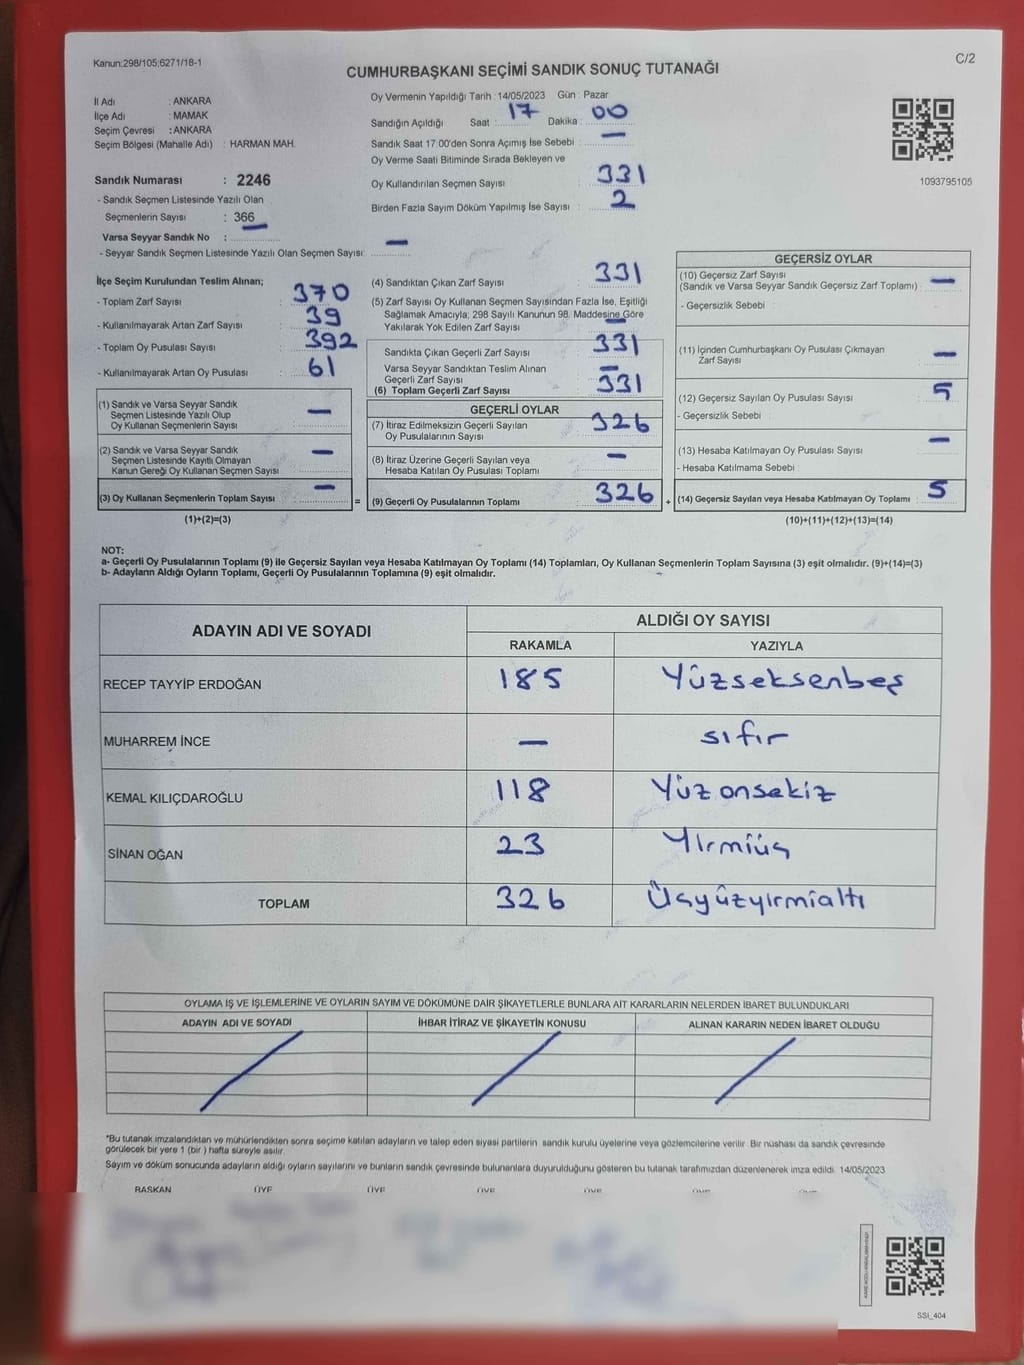 Kanun:298/105;6271/18-1
C/2
CUMHURBAŞKANI SEÇİMİ SANDIK SONUÇ TUTANAĞI
İl Adı : ANKARA
İlçe Adı : MAMAK
Seçim Çevresi : ANKARA
Seçim Bölgesi (Mahalle Adı) : HARMAN MAH.
Sandık Numarası : 2246
- Sandık Seçmen Listesinde Yazılı Olan
Seçmenlerin Sayısı : 366
Varsa Seyyar Sandık No : —
- Seyyar Sandık Seçmen Listesinde Yazılı Olan Seçmen Sayısı: —
Oy Vermenin Yapıldığı Tarih : 14/05/2023 Gün : Pazar
Sandığın Açıldığı Saat : 17 Dakika : 00
Sandık Saat 17.00'den Sonra Açımış İse Sebebi : —
Oy Verme Saati Bitiminde Sırada Bekleyen ve
Oy Kullandırılan Seçmen Sayısı : 331
Birden Fazla Sayım Döküm Yapılmış İse Sayısı : 2
1093795105
İlçe Seçim Kurulundan Teslim Alınan;
- Toplam Zarf Sayısı : 370
- Kullanılmayarak Artan Zarf Sayısı : 39
- Toplam Oy Pusulası Sayısı : 392
- Kullanılmayarak Artan Oy Pusulası : 61
(1) Sandık ve Varsa Seyyar Sandık
Seçmen Listesinde Yazılı Olup
Oy Kullanan Seçmenlerin Sayısı : —
(2) Sandık ve Varsa Seyyar Sandık
Seçmen Listesinde Kayıtlı Olmayan
Kanun Gereği Oy Kullanan Seçmen Sayısı : —
(3) Oy Kullanan Seçmenlerin Toplam Sayısı : —
(1)+(2)=(3)
=
(4) Sandıktan Çıkan Zarf Sayısı : 331
(5) Zarf Sayısı Oy Kullanan Seçmen Sayısından Fazla İse, Eşitliği
Sağlamak Amacıyla; 298 Sayılı Kanunun 98. Maddesine Göre
Yakılarak Yok Edilen Zarf Sayısı : —
Sandıkta Çıkan Geçerli Zarf Sayısı : 331
Varsa Seyyar Sandıktan Teslim Alınan
Geçerli Zarf Sayısı : —
(6) Toplam Geçerli Zarf Sayısı : 331
GEÇERLİ OYLAR
(7) İtiraz Edilmeksizin Geçerli Sayılan
Oy Pusulalarının Sayısı : 326
(8) İtiraz Üzerine Geçerli Sayılan veya
Hesaba Katılan Oy Pusulası Toplamı : —
(9) Geçerli Oy Pusulalarının Toplamı : 326
+
GEÇERSİZ OYLAR
(10) Geçersiz Zarf Sayısı
(Sandık ve Varsa Seyyar Sandık Geçersiz Zarf Toplamı) : —
- Geçersizlik Sebebi :
(11) İçinden Cumhurbaşkanı Oy Pusulası Çıkmayan
Zarf Sayısı : —
(12) Geçersiz Sayılan Oy Pusulası Sayısı : 5
- Geçersizlik Sebebi :
(13) Hesaba Katılmayan Oy Pusulası Sayısı : —
- Hesaba Katılmama Sebebi
(14) Geçersiz Sayılan veya Hesaba Katılmayan Oy Toplamı : 5
(10)+(11)+(12)+(13)=(14)
NOT:
a- Geçerli Oy Pusulalarının Toplamı (9) ile Geçersiz Sayılan veya Hesaba Katılmayan Oy Toplamı (14) Toplamları, Oy Kullanan Seçmenlerin Toplam Sayısına (3) eşit olmalıdır. (9)+(14)=(3)
b- Adayların Aldığı Oyların Toplamı, Geçerli Oy Pusulalarının Toplamına (9) eşit olmalıdır.
ADAYIN ADI VE SOYADI
ALDIĞI OY SAYISI
RAKAMLA YAZIYLA
RECEP TAYYİP ERDOĞAN 185 Yüzseksenbeş
MUHARREM İNCE — sıfır
KEMAL KILIÇDAROĞLU 118 Yüzonsekiz
SİNAN OĞAN 23 Yirmiüç
TOPLAM 326 Üçyüzyirmialtı
OYLAMA İŞ VE İŞLEMLERİNE VE OYLARIN SAYIM VE DÖKÜMÜNE DAİR ŞİKAYETLERLE BUNLARA AİT KARARLARIN NELERDEN İBARET BULUNDUKLARI
ADAYIN ADI VE SOYADI İHBAR İTİRAZ VE ŞİKAYETİN KONUSU ALINAN KARARIN NEDEN İBARET OLDUĞU
*Bu tutanak imzalandıktan ve mühürlendikten sonra seçime katılan adayların ve talep eden siyasi partilerin sandık kurulu üyelerine veya gözlemcilerine verilir. Bir nüshası da sandık çevresinde
görülecek bir yere 1 (bir ) hafta süreyle asılır.
Sayım ve döküm sonucunda adayların aldığı oyların sayılarını ve bunların sandık çevresinde bulunanlara duyurulduğunu gösteren bu tutanak tarafımızdan düzenlenerek imza edildi. 14/05/2023
BAŞKAN ÜYE ÜYE ÜYE ÜYE ÜYE ÜYE
SSİ_404